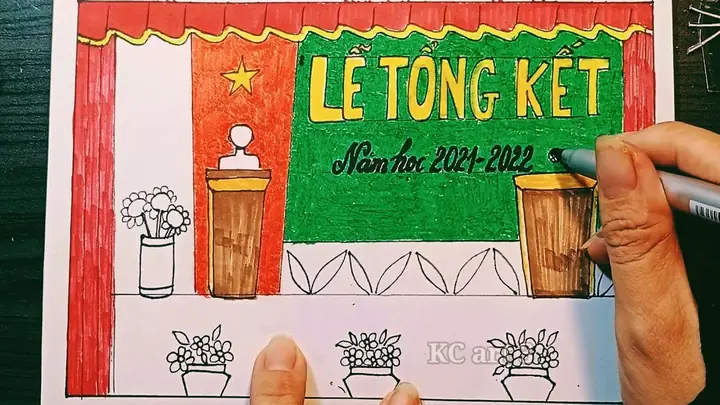 LỄ TỔNG KẾT
Năm học 2021-2022